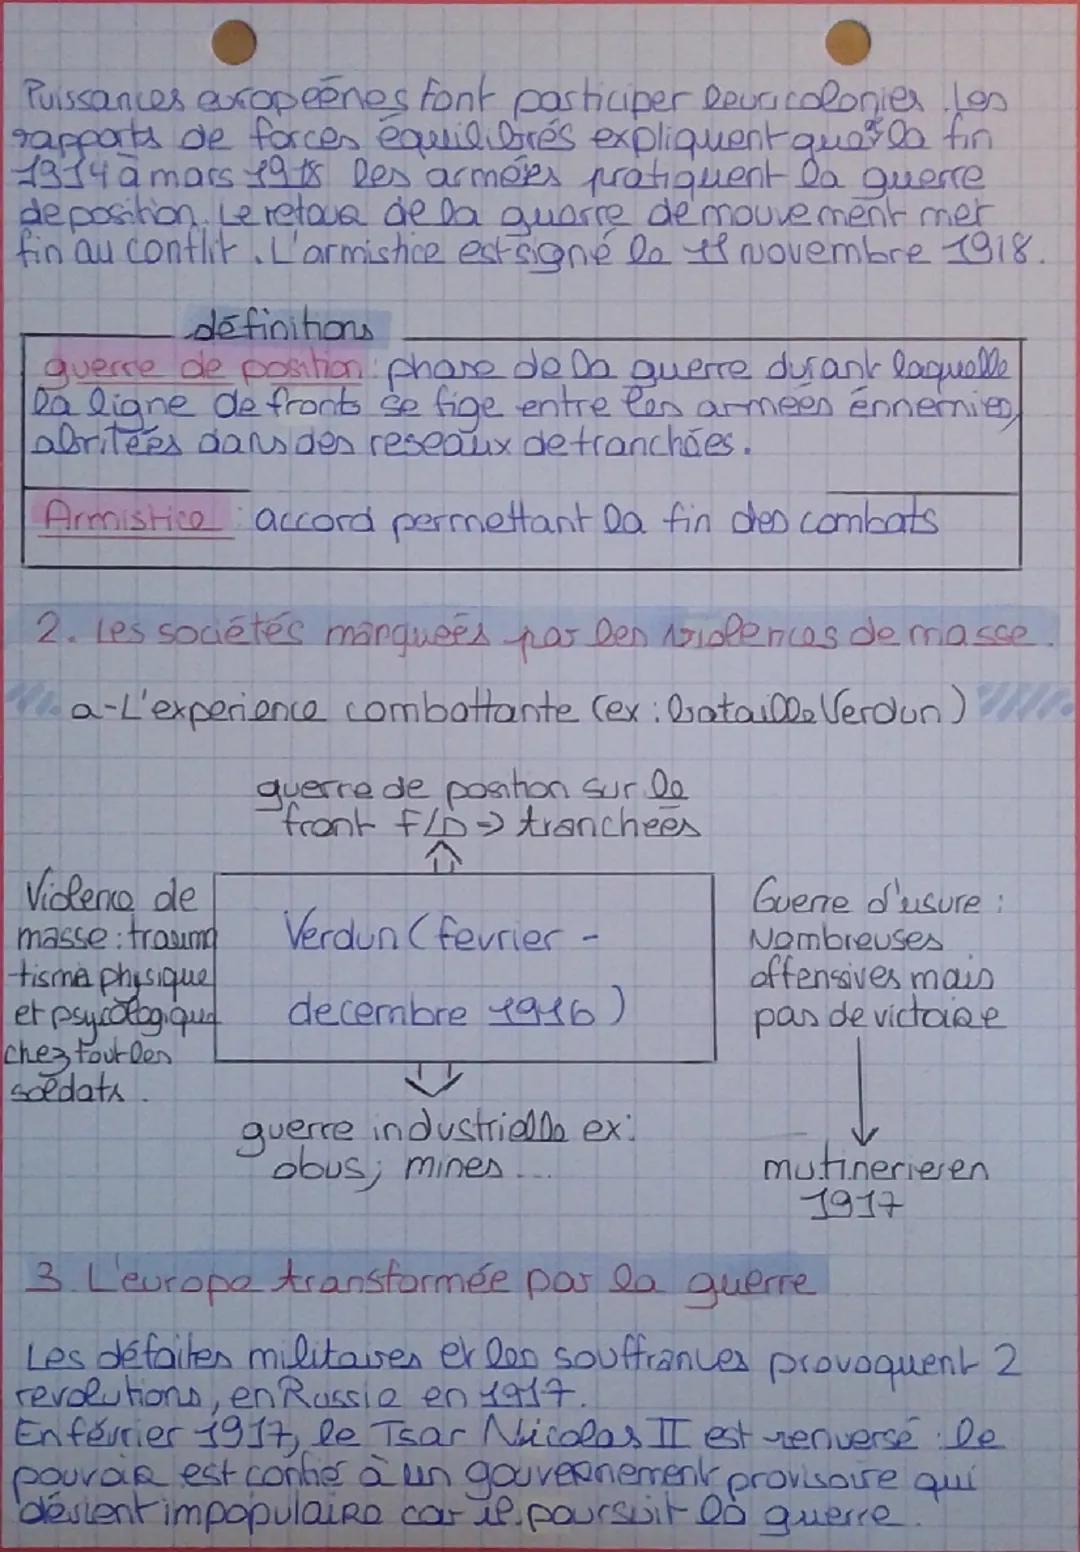 Puissances européenes font participer leurs colonies. Les
rapports de forces équilibrés expliquent que la fin
1914 à mars 1918 les armées pratiquent la guerre
de position. Le retour de la guerre de mouvement met
fin au conflit. L'armistice est signé le 11 novembre 1918.
définitions
guerre de position : phase de la guerre durant laquelle
la ligne de fronts se fige entre les armées énnemies,
abritées dans des reseaux de tranchées.
Armistice : accord permettant la fin des combats
2. Les sociétés marquées par les violences de masse.
a-L'experience combattante (ex : bataille Verdun)
guerre de position sur le
front F/D => tranchées
Violence de
masse : trauma
tisme physique
et psycologique
chez tout les
soldats.
Verdun (fevrier -
decembre 1916)
Guerre d'usure :
Nombreuses
offensives mais
pas de victoire
guerre industrielle ex:
obus; mines...
mutineries en
1917
3. L'europe transformée par la guerre
Les défaites militaires et les souffrances provoquent 2
revolutions, en Russie en 1917.
En février 1917, le Tsar Nicolas II est renversé. Le
pouvoir est confié à un gouvernement provisoire qui
devient impopulaire car il poursuit la guerre.